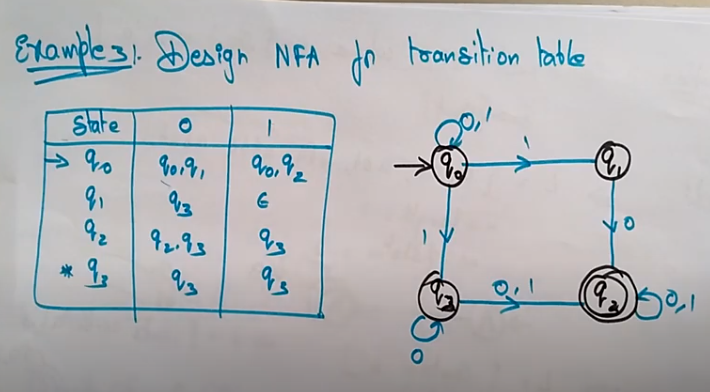 Example 3: Design NFA for transition table
State 0 1
→ q0 q0,q1 q0,q2
q1 q3 ε
q2 q2,q3 q3
* q3 q3 q3
0,1
q0 1 q1
1 0
q3 0,1 q2 0,1
0